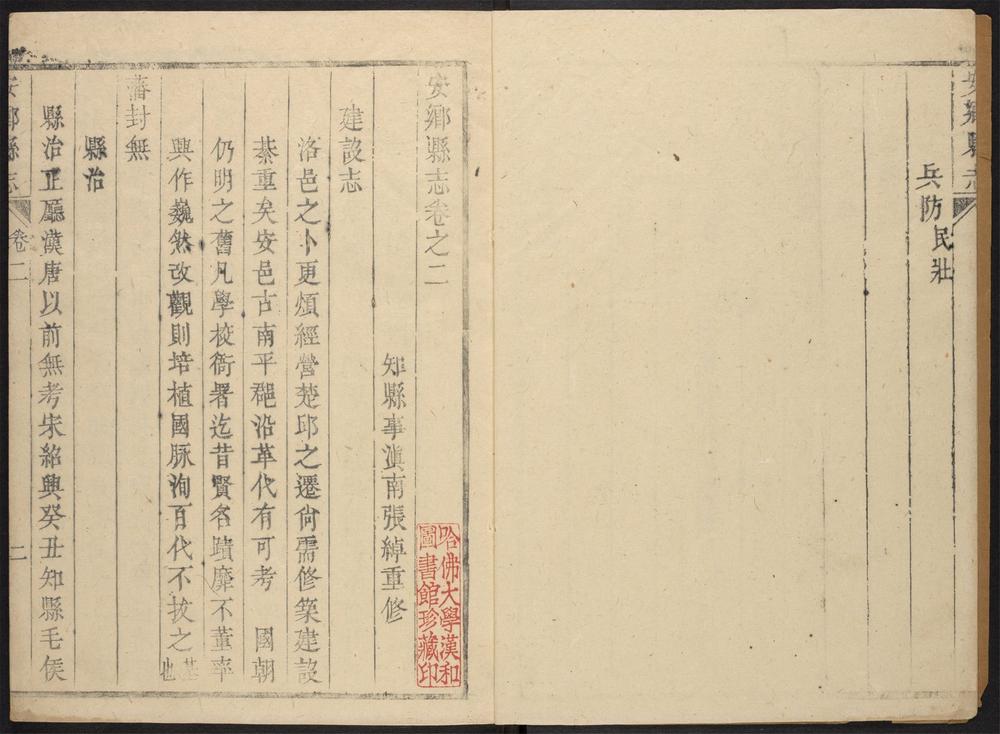 安鄉縣志
兵防 民壯
安鄉縣志卷之二
知縣事滇南張綽重修
建設志
洛邑之卜更煩經營楚邱之遷尙需修築建設
綦重矣安邑古南平郡沿革代有可考 國朝
仍明之舊凡學校衙署迄昔賢名蹟靡不董率
興作巍然改觀則培植國脉洵百代不拔之基也
藩封無
縣治
縣治正廳漢唐以前無考宋紹興癸丑知縣毛侯
安鄉縣志 卷二 二
哈佛大學漢和
圖書館珍藏印